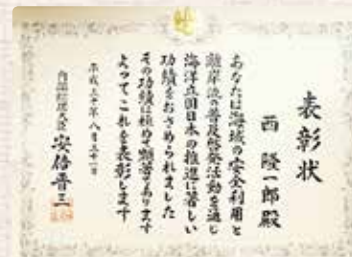 表彰状
西 隆一郎 殿
あなたは海域の安全利用と
離岸流の普及啓発活動を通じ
海洋立国日本の推進に著しい
功績をおさめられました
その功績は極めて顕著であります
よってこれを表彰します
平成三十年八月三十一日
内閣総理大臣 安倍晋三